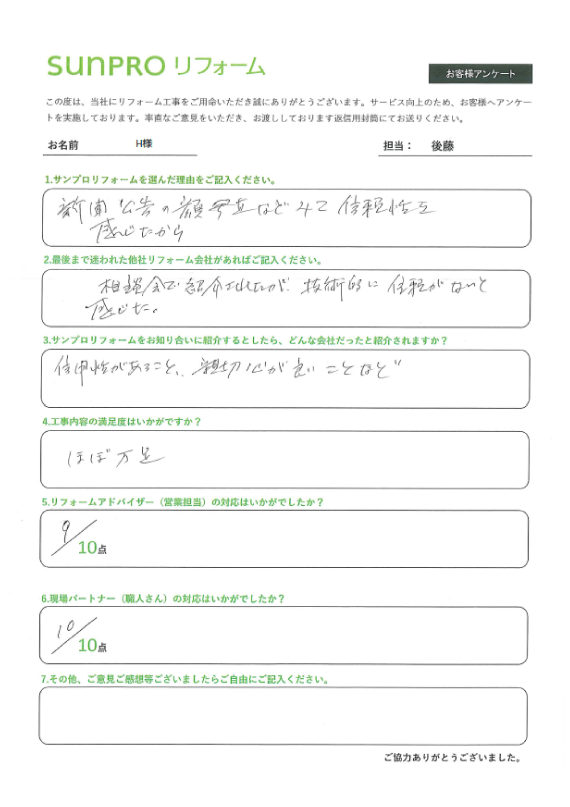 SUNPRO リフォーム
お客様アンケート
この度は、当社にリフォーム工事をご用命いただき誠にありがとうございます。サービス向上のため、お客様へアンケー
トを実施しております。率直なご意見をいただき、お渡ししております返信用封筒にてお送りください。
お名前 H様 担当： 後藤
1.サンプロリフォームを選んだ理由をご記入ください。
新聞公告の顔写真などみて信頼性を
感じたから
2.最後まで迷われた他社リフォーム会社があればご記入ください。
相談会で紹介されたが、技術的に信頼がないと
感じた。
3.サンプロリフォームをお知り合いに紹介するとしたら、どんな会社だったと紹介されますか？
信用性があること、親切心が良いことなど
4.工事内容の満足度はいかがですか？
ほぼ万足
5.リフォームアドバイザー（営業担当）の対応はいかがでしたか？
9/10点
6.現場パートナー（職人さん）の対応はいかがでしたか？
10/10点
7.その他、ご意見ご感想等ございましたらご自由にご記入ください。
ご協力ありがとうございました。